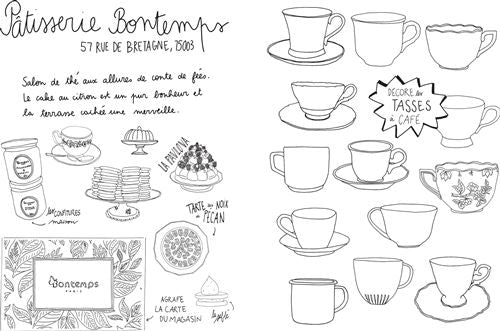 Pâtisserie Bontemps
57 RUE DE BRETAGNE, 75003
Salon de thé aux allures de conte de fées.
Le cake au citron est un pur bonheur et
la terrasse cachée une merveille.
LA PAVLOVA
les CONFITURES
maison
TARTE aux NOIX
de PÉCAN
Bontemps
PARIS
AGRAFE
LA CARTE
DU MAGASIN
DÉCORE les
TASSES
à CAFÉ